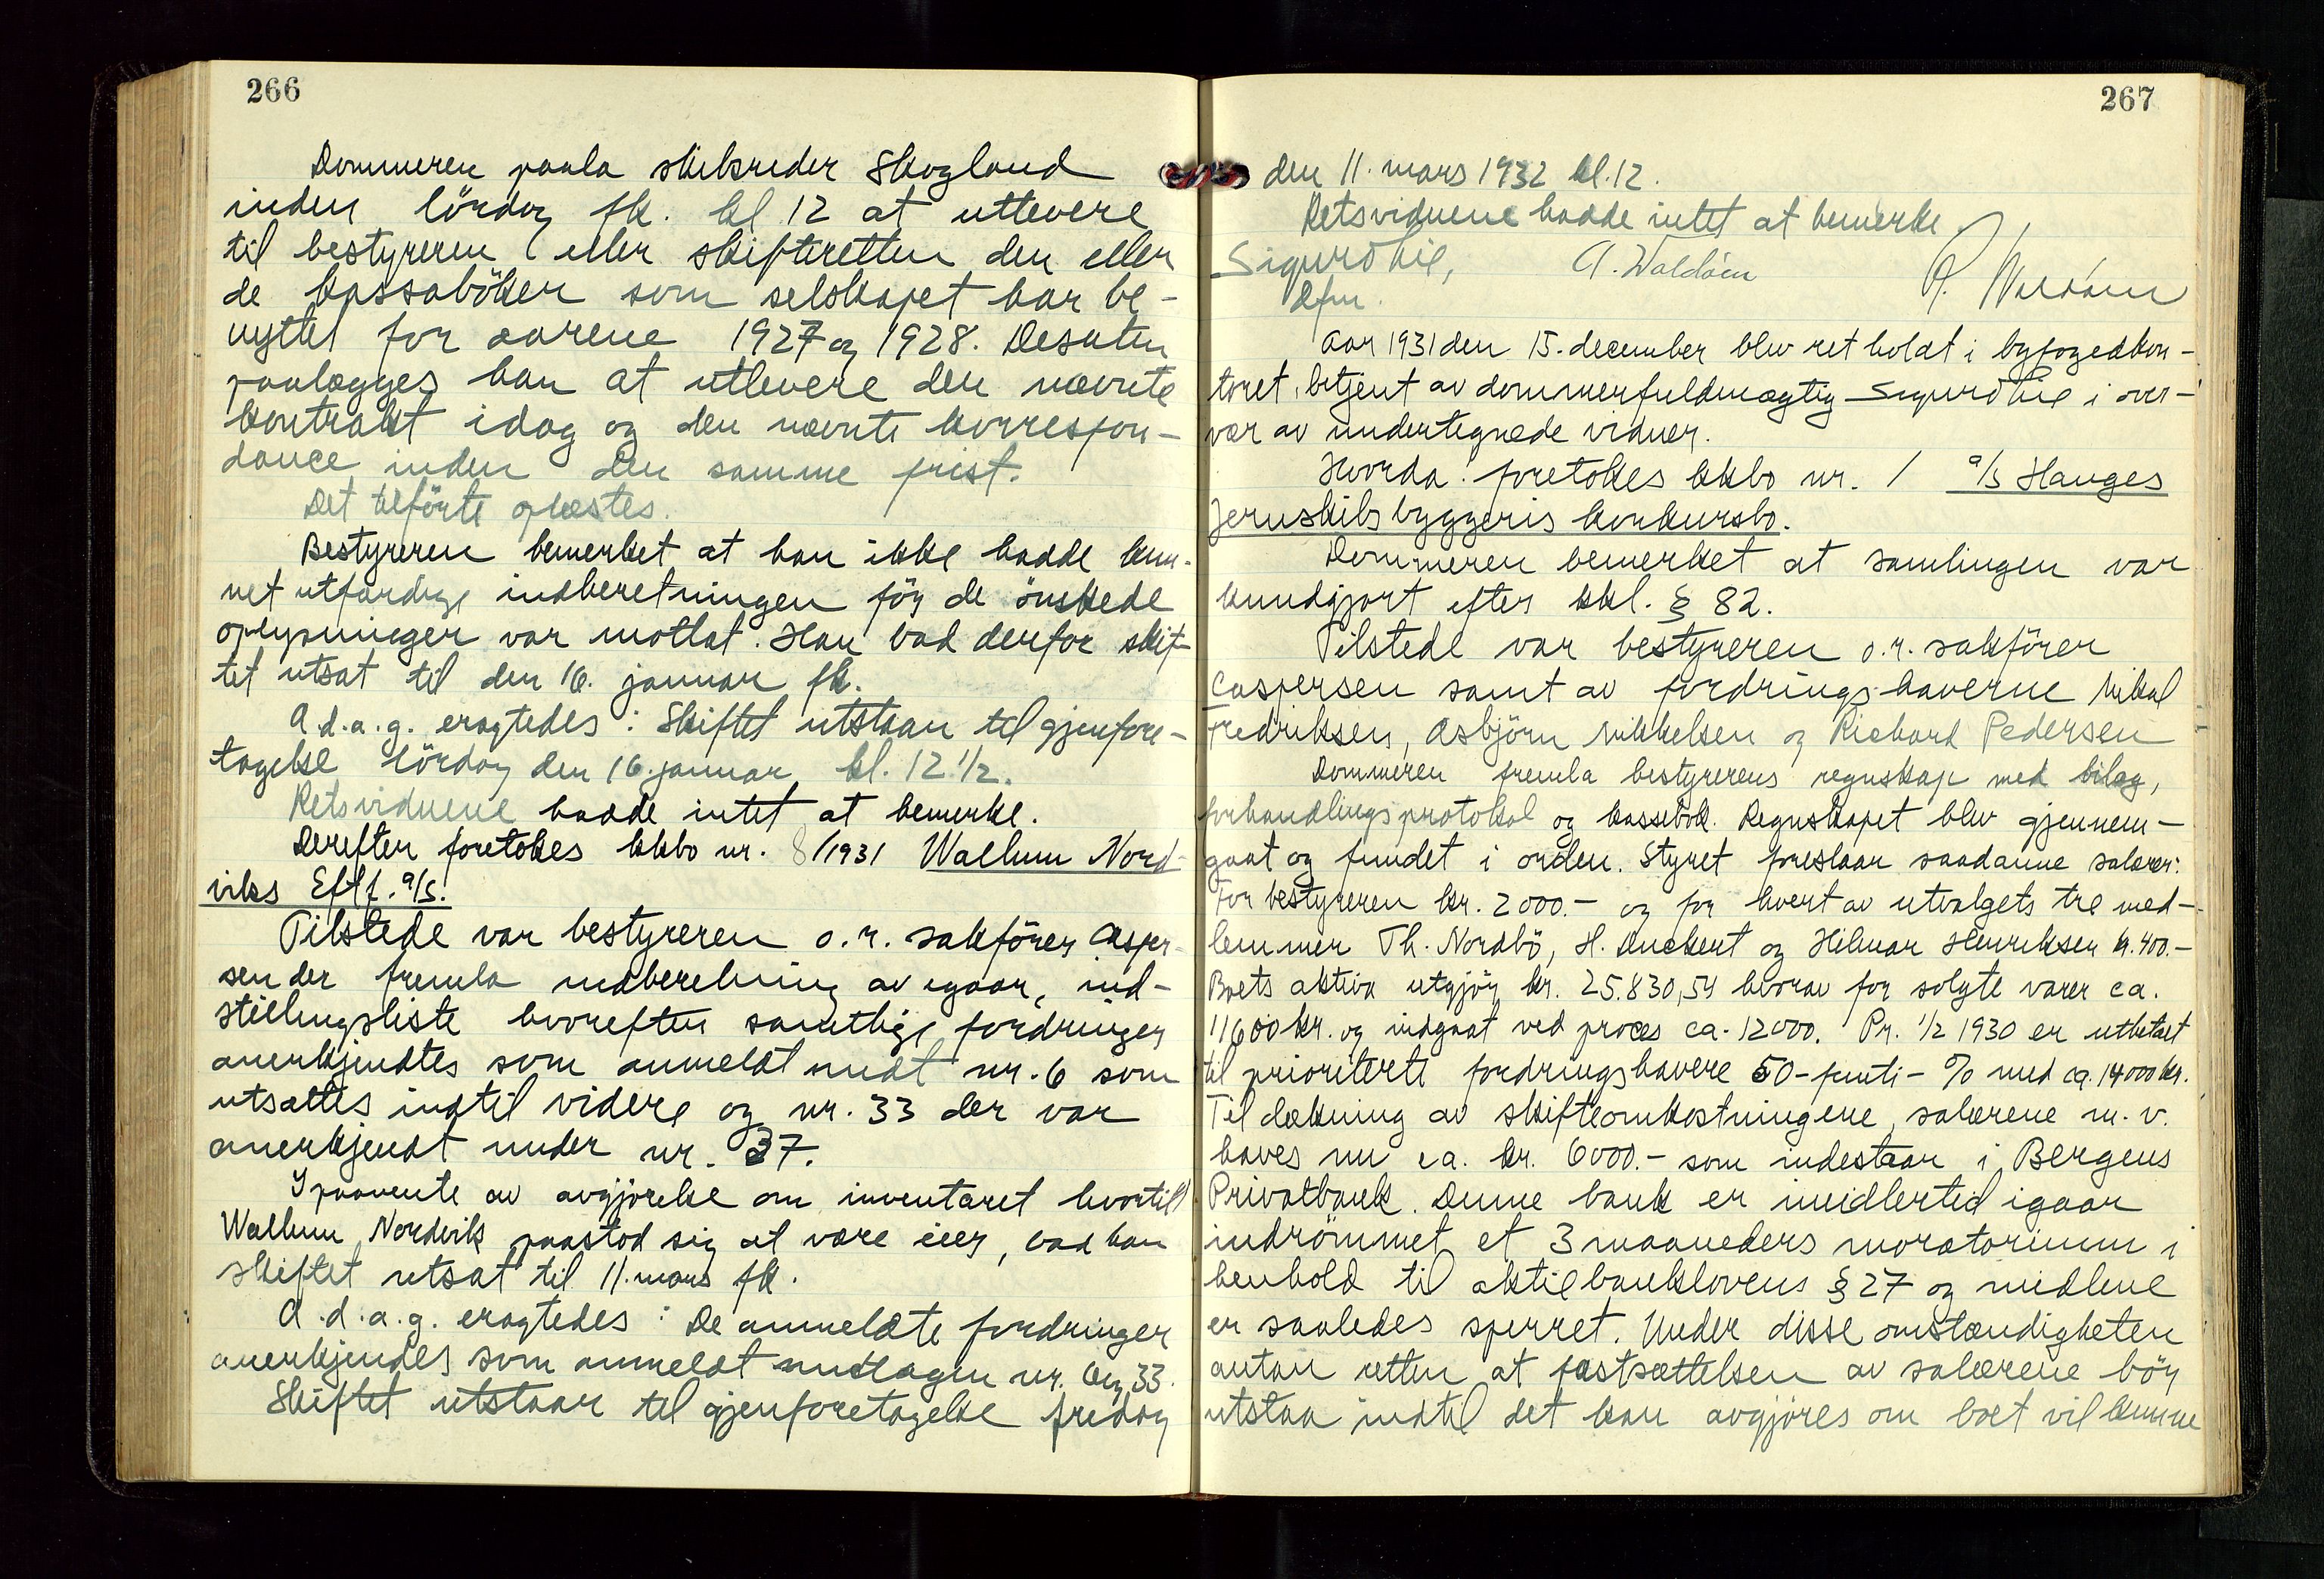 266
Dommeren paala skibsreder Skogland
inden lördag fk. kl 12 at utlevere
til bestyreren eller skifteretten den eller
de kassaböker som selskapet har be-
nyttet for aarene 1927 og 1928. Desuten
paalægges han at utlevere den nævnte
kontrakt idag og den nævnte korrespon-
dance inden den samme frist.
Det tilförte oplæstes.
Bestyreren bemerket at han ikke hadde kun-
net utfærdige indberetningen för de önskede
oplysninger var mottat. Han bad derfor skif-
tet utsat til den 16. januar fk.
A.d.a.g. eragtedes: Skiftet utstaar til gjenfore-
tagelse lördag den 16. januar kl. 12 1/2.
Retsvidnene hadde intet at bemerke.
Derefter foretokes kkbo nr. 8/1931 Wallum Nord-
viks Eftf. a/s.
Tilstede var bestyreren o.r. sakförer Casper-
sen der fremla indberetning av igaar, ind-
stillingsliste hvorefter samtlige fordringer
anerkjendtes som anmeldt undt nr. 6 som
utsattes indtil videre og nr. 33 der var
anerkjendt under nr. 37.
I paavente av avgjörelse om inventaret hvortil
Wallum Nordvik paastod sig at være eier, bad han
skiftet utsat til 11. mars fk.
A.d.a.g. eragtedes: De anmeldte fordringer
anerkjendes som anmeldt undtagen nr. 6 og 33.
Skiftet utstaar til gjenforetagelse fredag
267
den 11. mars 1932 kl. 12.
Retsvidnene hadde intet at bemerke.
Sigurd A. Waldaou
dfm.
Aar 1931 den 15. december blev ret holdt i byfogedkon-
toret, betjent av dommerfuldmægtig Sigurd i over-
vær av undertegnede vidner.
Hvorda: foretokes kkbo nr. 1 a/s Hauges
Jernskibsbyggeris konkursbo.
Dommeren bemerket at samlingen var
kundgjort efter kkl. § 82.
Tilstede var bestyreren o.r. sakförer
Caspersen samt av fordringshaverne Mikal
Fredriksen, Asbjörn Mikkelsen og Richard Pedersen
Dommeren fremla bestyrerens regnskap med bilag,
forhandlingsprotokol og kassebok. Regnskapet blev gjennem-
gaat og fundet i orden. Styret foreslaar saadanne salærer:
For bestyreren kr. 2000.- og for hvert av utvalgets tre med-
lemmer Th. Nordbö, H. Duckert og Hilmar Henriksen k. 400.-
Boets aktiva utgjör kr. 25.830,54 hvorav for solgte varer ca.
11600 kr. og indgaat ved proces ca. 12000. Pr. 1/2 1930 er utbetalt
til prioriterte fordringshavere 50-femti-% med ca. 14000 kr.
Til dækning av skifteomkostningene, salærene m.v.
haves nu ca. kr. 6000.- som indestaar i Bergens
Privatbank. Denne bank er imidlertid igaar
indrömmet et 3 maaneders moratorium i
henhold til aktiebanklovens § 27 og midlene
er saaledes sperret. Under disse omstændigheter
antar retten at fastsættelsen av salærene bör
utstaa indtil det kan avgjöres om boet vil kunne